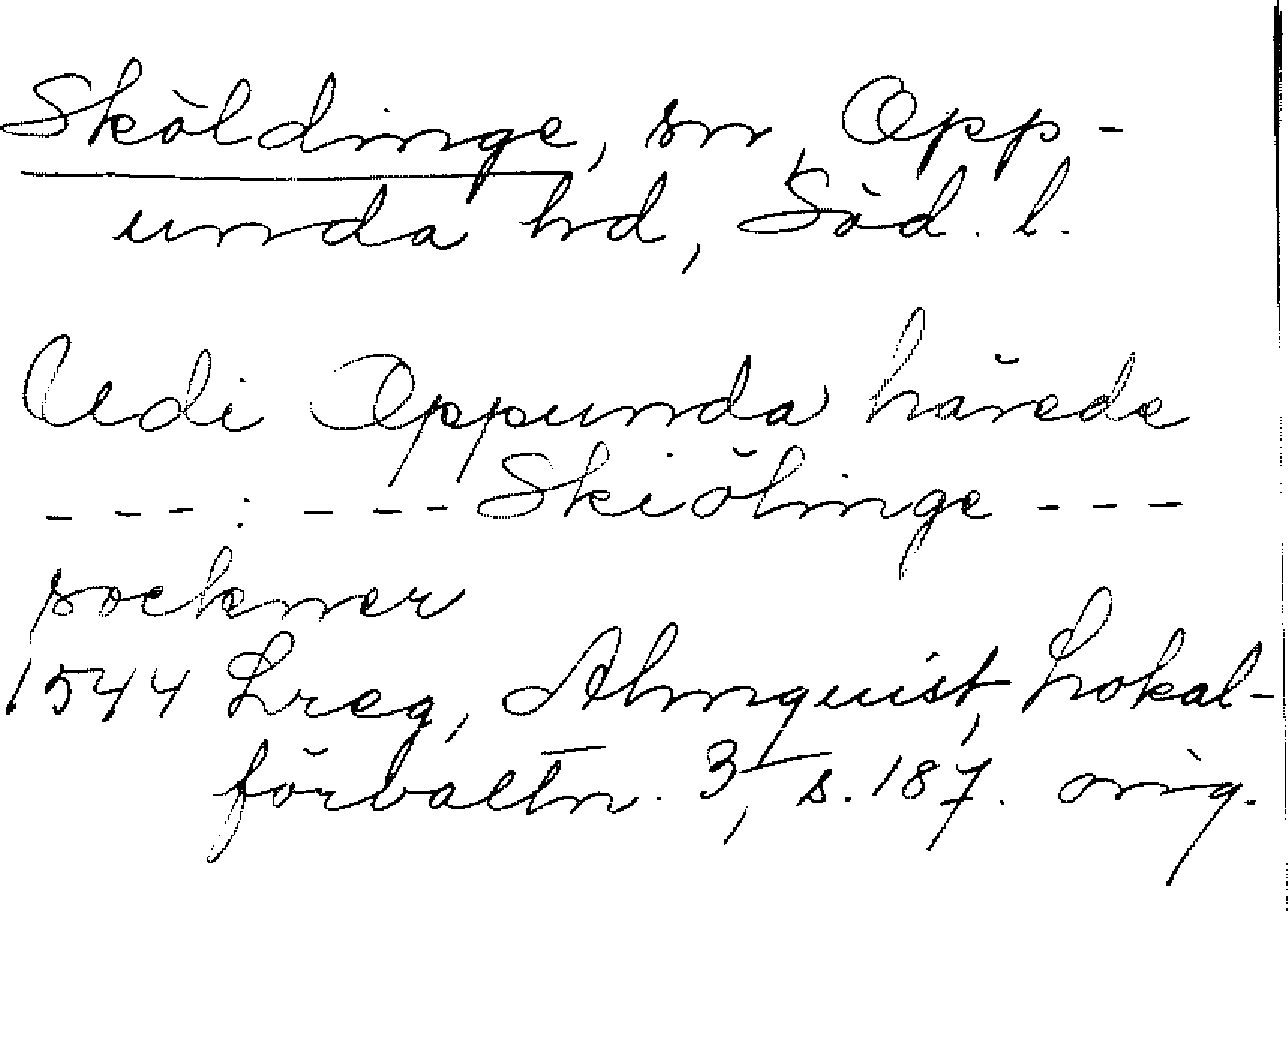 Sköldinge, sn, Opp-
unda hd, Söd. l.
Udi Oppunda härede
- - - . - - - Skiölinge - - -
sockner
1544 Lreg, Almquist, Lokal-
förvaltn. 3, s. 187. orig.